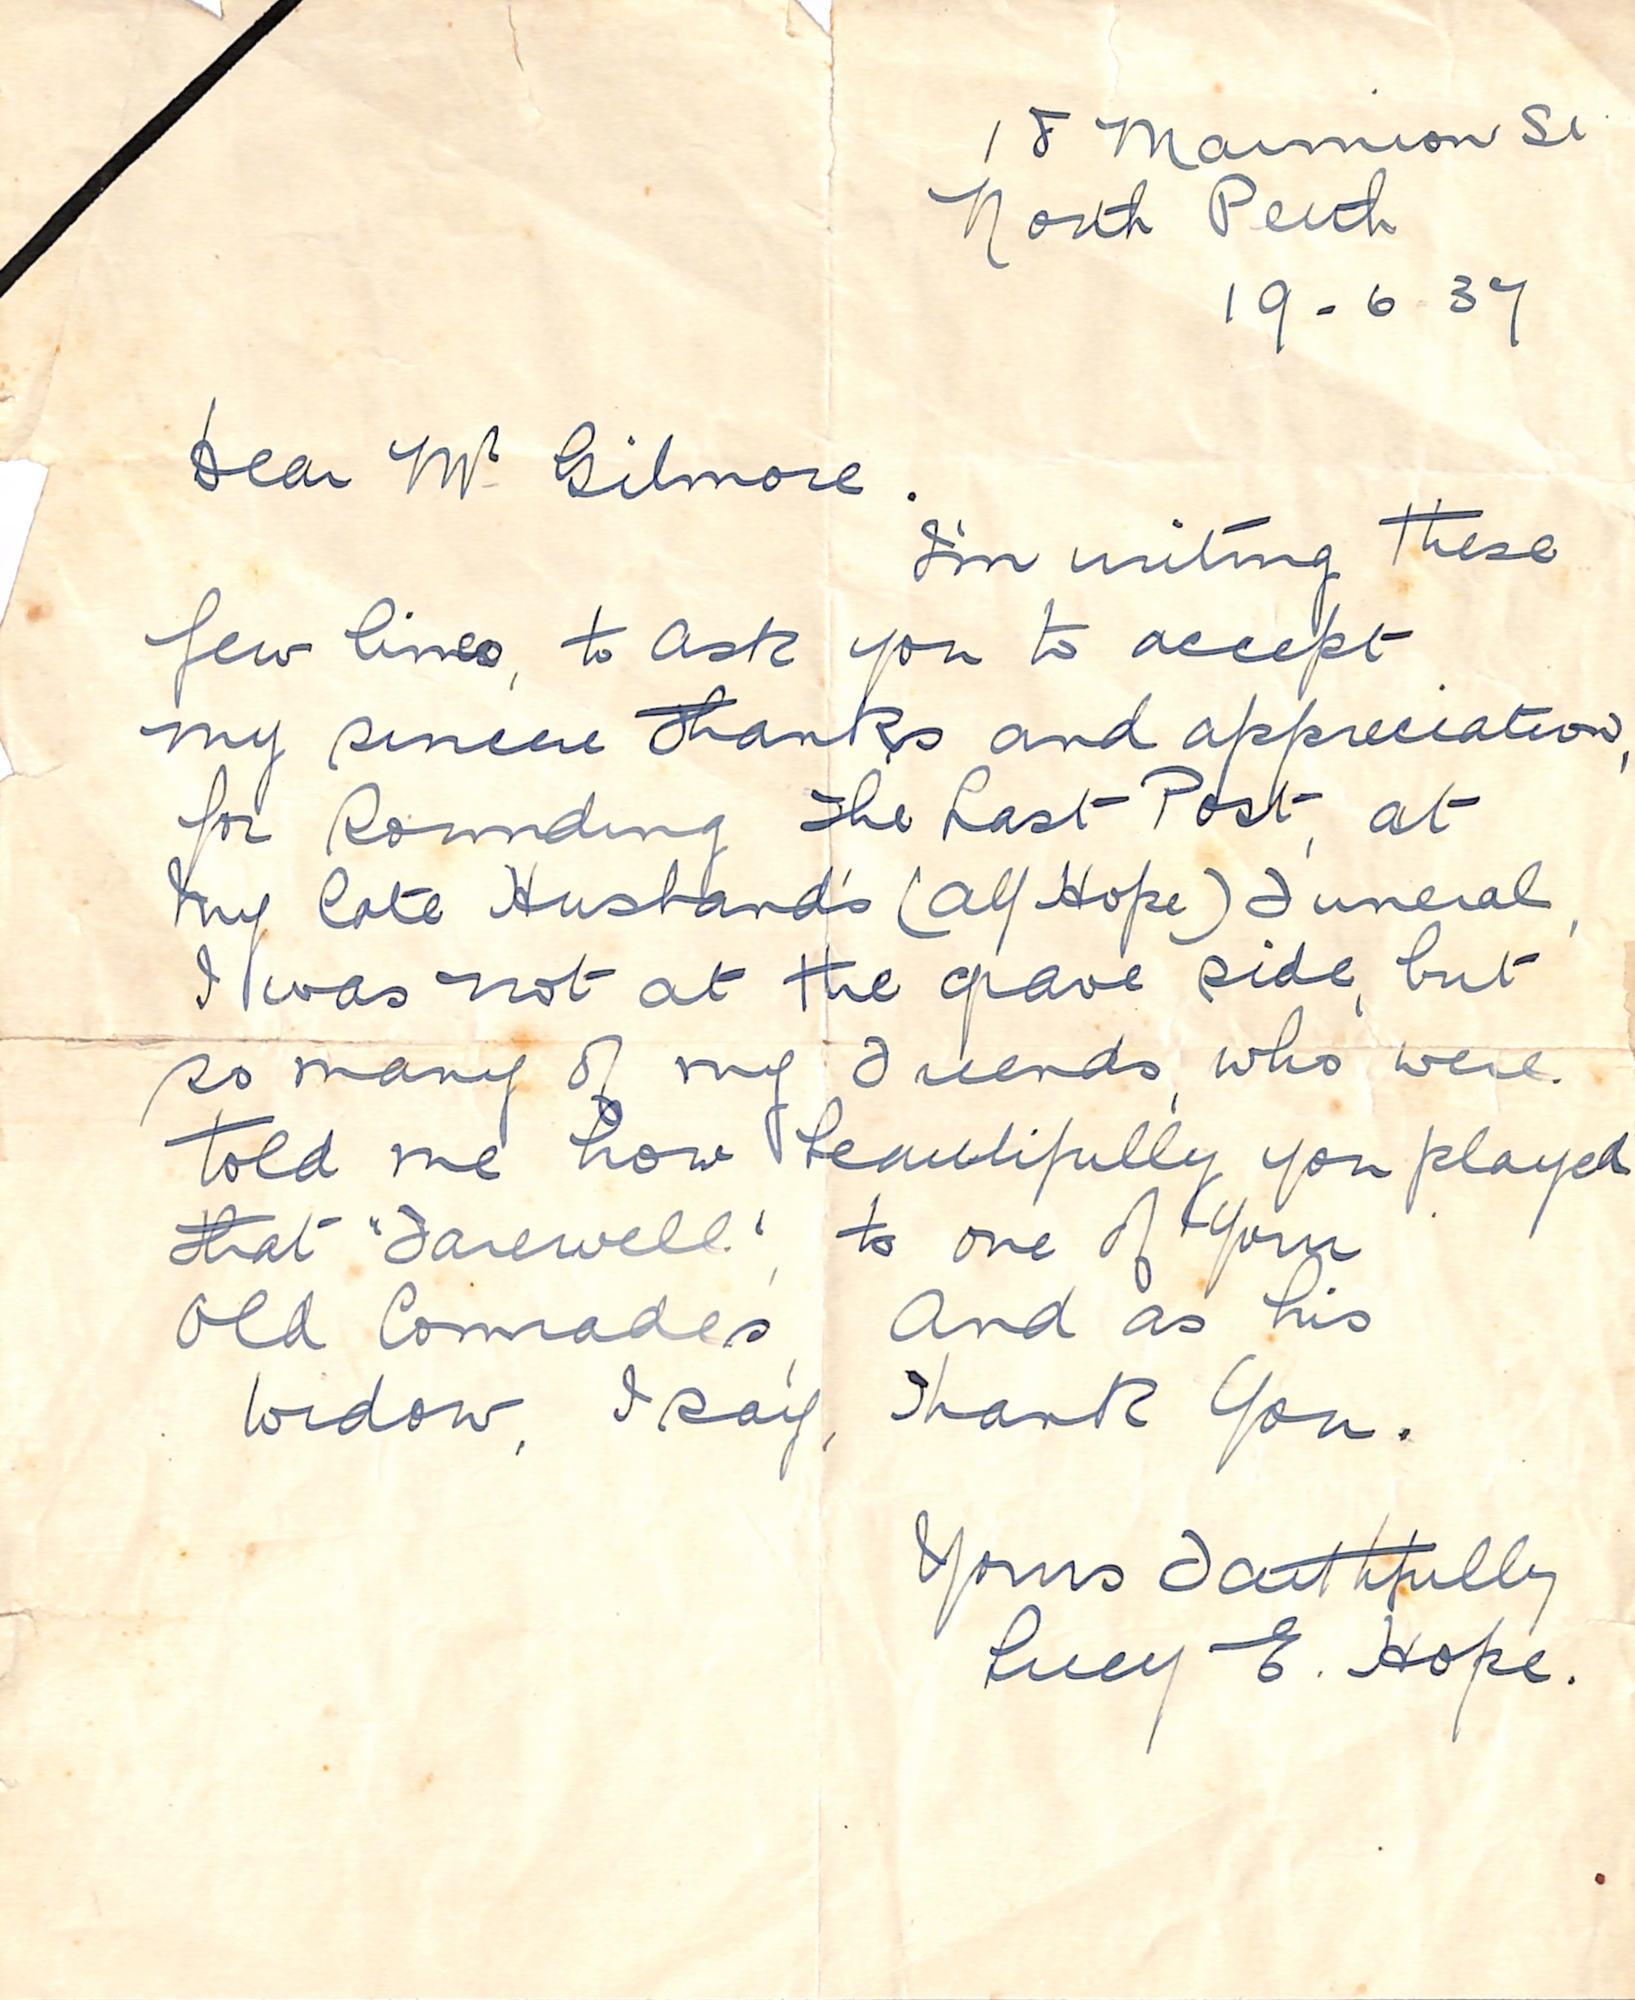 18 Marmion St
North Perth
19-6-37
Dear Mr Gilmore.
I'm writing these
few lines, to ask you to accept
my sincere thanks and appreciation,
for Sounding The Last Post, at
My late Husband's (Alf Hope) Funeral,
I was not at the grave side, but
so many of my Friends, who were.
told me how beautifully you played
that "Farewell", to one of Your
Old Comrades, And as his
Widow, I say, Thank You.
Yours Faithfully
Lucy E. Hope.